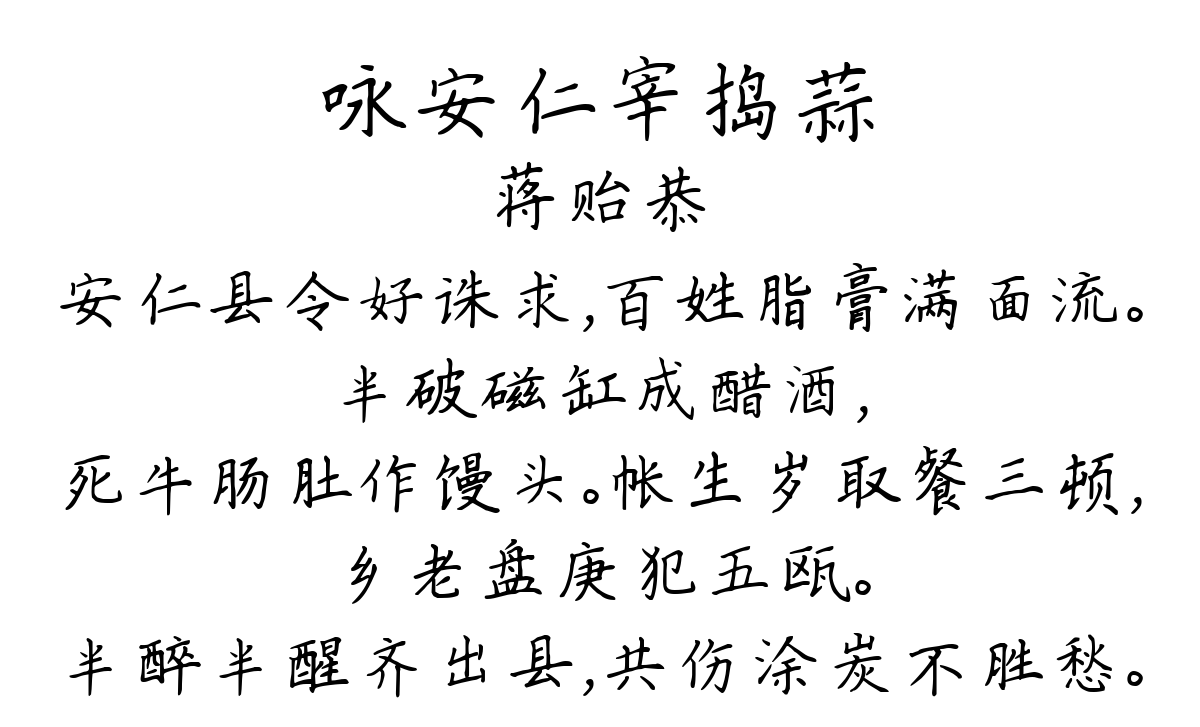 咏安仁宰捣蒜
蒋贻恭
安仁县令好诛求,百姓脂膏满面流。
半破磁缸成醋酒,
死牛肠肚作馒头。帐生岁取餐三顿,
乡老盘庚犯五瓯。
半醉半醒齐出县,共伤涂炭不胜愁。